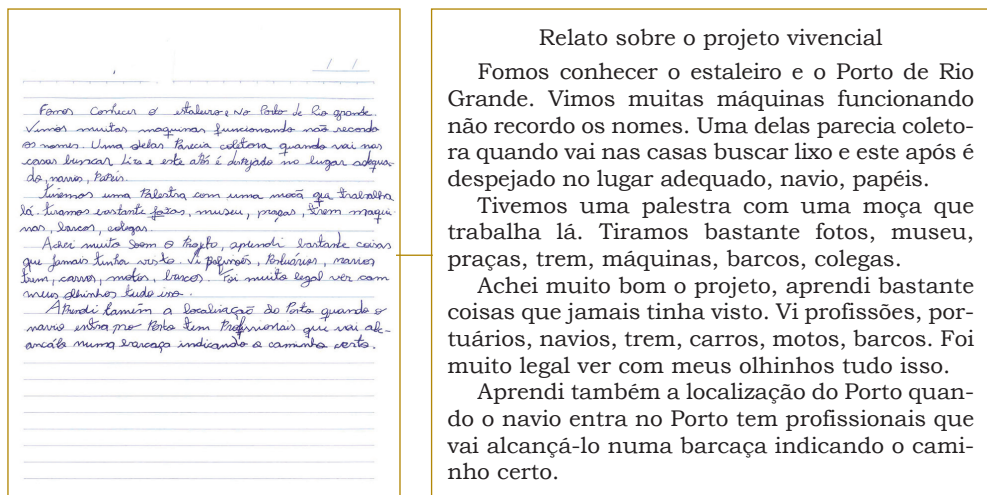 Fomos conhecer o estaleiro e No Porto de Rio grande.
Vimos muitas maquinas funcionando não recordo
os nomes. Uma delas Parecia coletora quando vai nas
casas buscar lixo e este é despejado no lugar adequa-
do, navio, Papeis.
Tivemos uma Palestra com uma moça que trabalha
lá. tiramos bastante fotos, museu, praças, trem maqui
nas, barcos, colegas.
Achei muito bom o Projeto, aprendi bastante coisas
que jamais tinha visto. Vi profissões, Portuários, navios
trem, carros, motos, barcos. Foi muito legal ver com
meus olhinhos tudo isso.
Aprendi tamém a localização do Porto quando o
navio entra no Porto tem Profissionais que vai al-
numa barcaça indicando o caminho certo.
Relato sobre o projeto vivencial
Fomos conhecer o estaleiro e o Porto de Rio
Grande. Vimos muitas máquinas funcionando
não recordo os nomes. Uma delas parecia coleto-
ra quando vai nas casas buscar lixo e este após é
despejado no lugar adequado, navio, papéis.
Tivemos uma palestra com uma moça que
trabalha lá. Tiramos bastante fotos, museu,
praças, trem, máquinas, barcos, colegas.
Achei muito bom o projeto, aprendi bastante
coisas que jamais tinha visto. Vi profissões, por-
tuários, navios, trem, carros, motos, barcos. Foi
muito legal ver com meus olhinhos tudo isso.
Aprendi também a localização do Porto quan-
do o navio entra no Porto tem profissionais que
vai alcançá-lo numa barcaça indicando o cami-
nho certo.